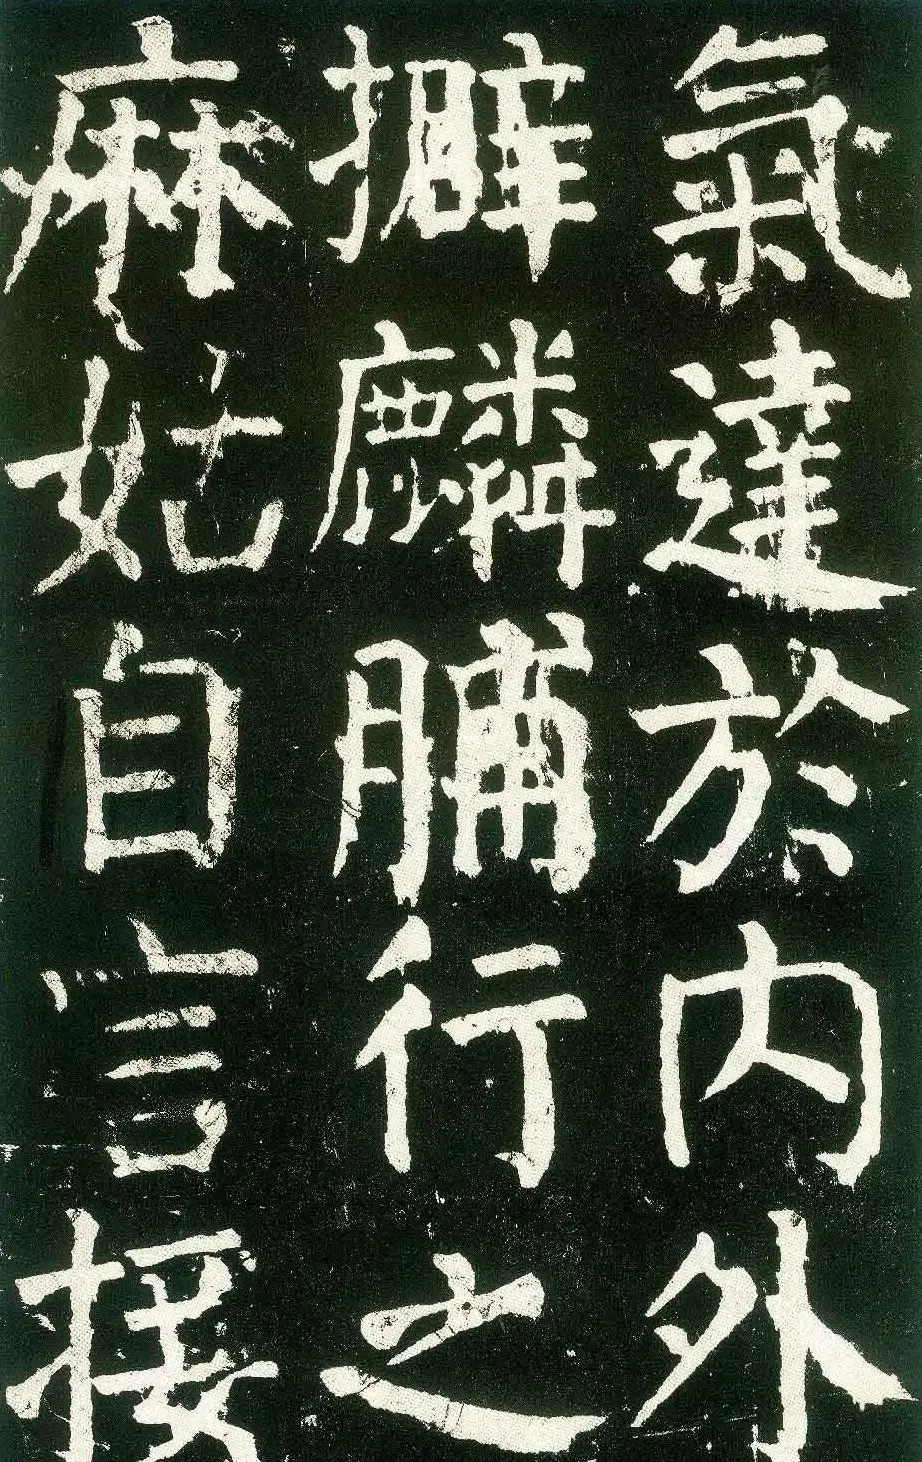 氣達於內外
擗麟脯行之
麻姑自言接